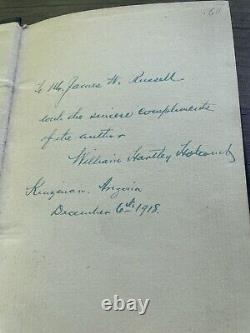 To Mr. James W. Russell
with the sincere compliments
of the author
William Hartley Holcomb
Kingman, Arizona
December 6th 1918.